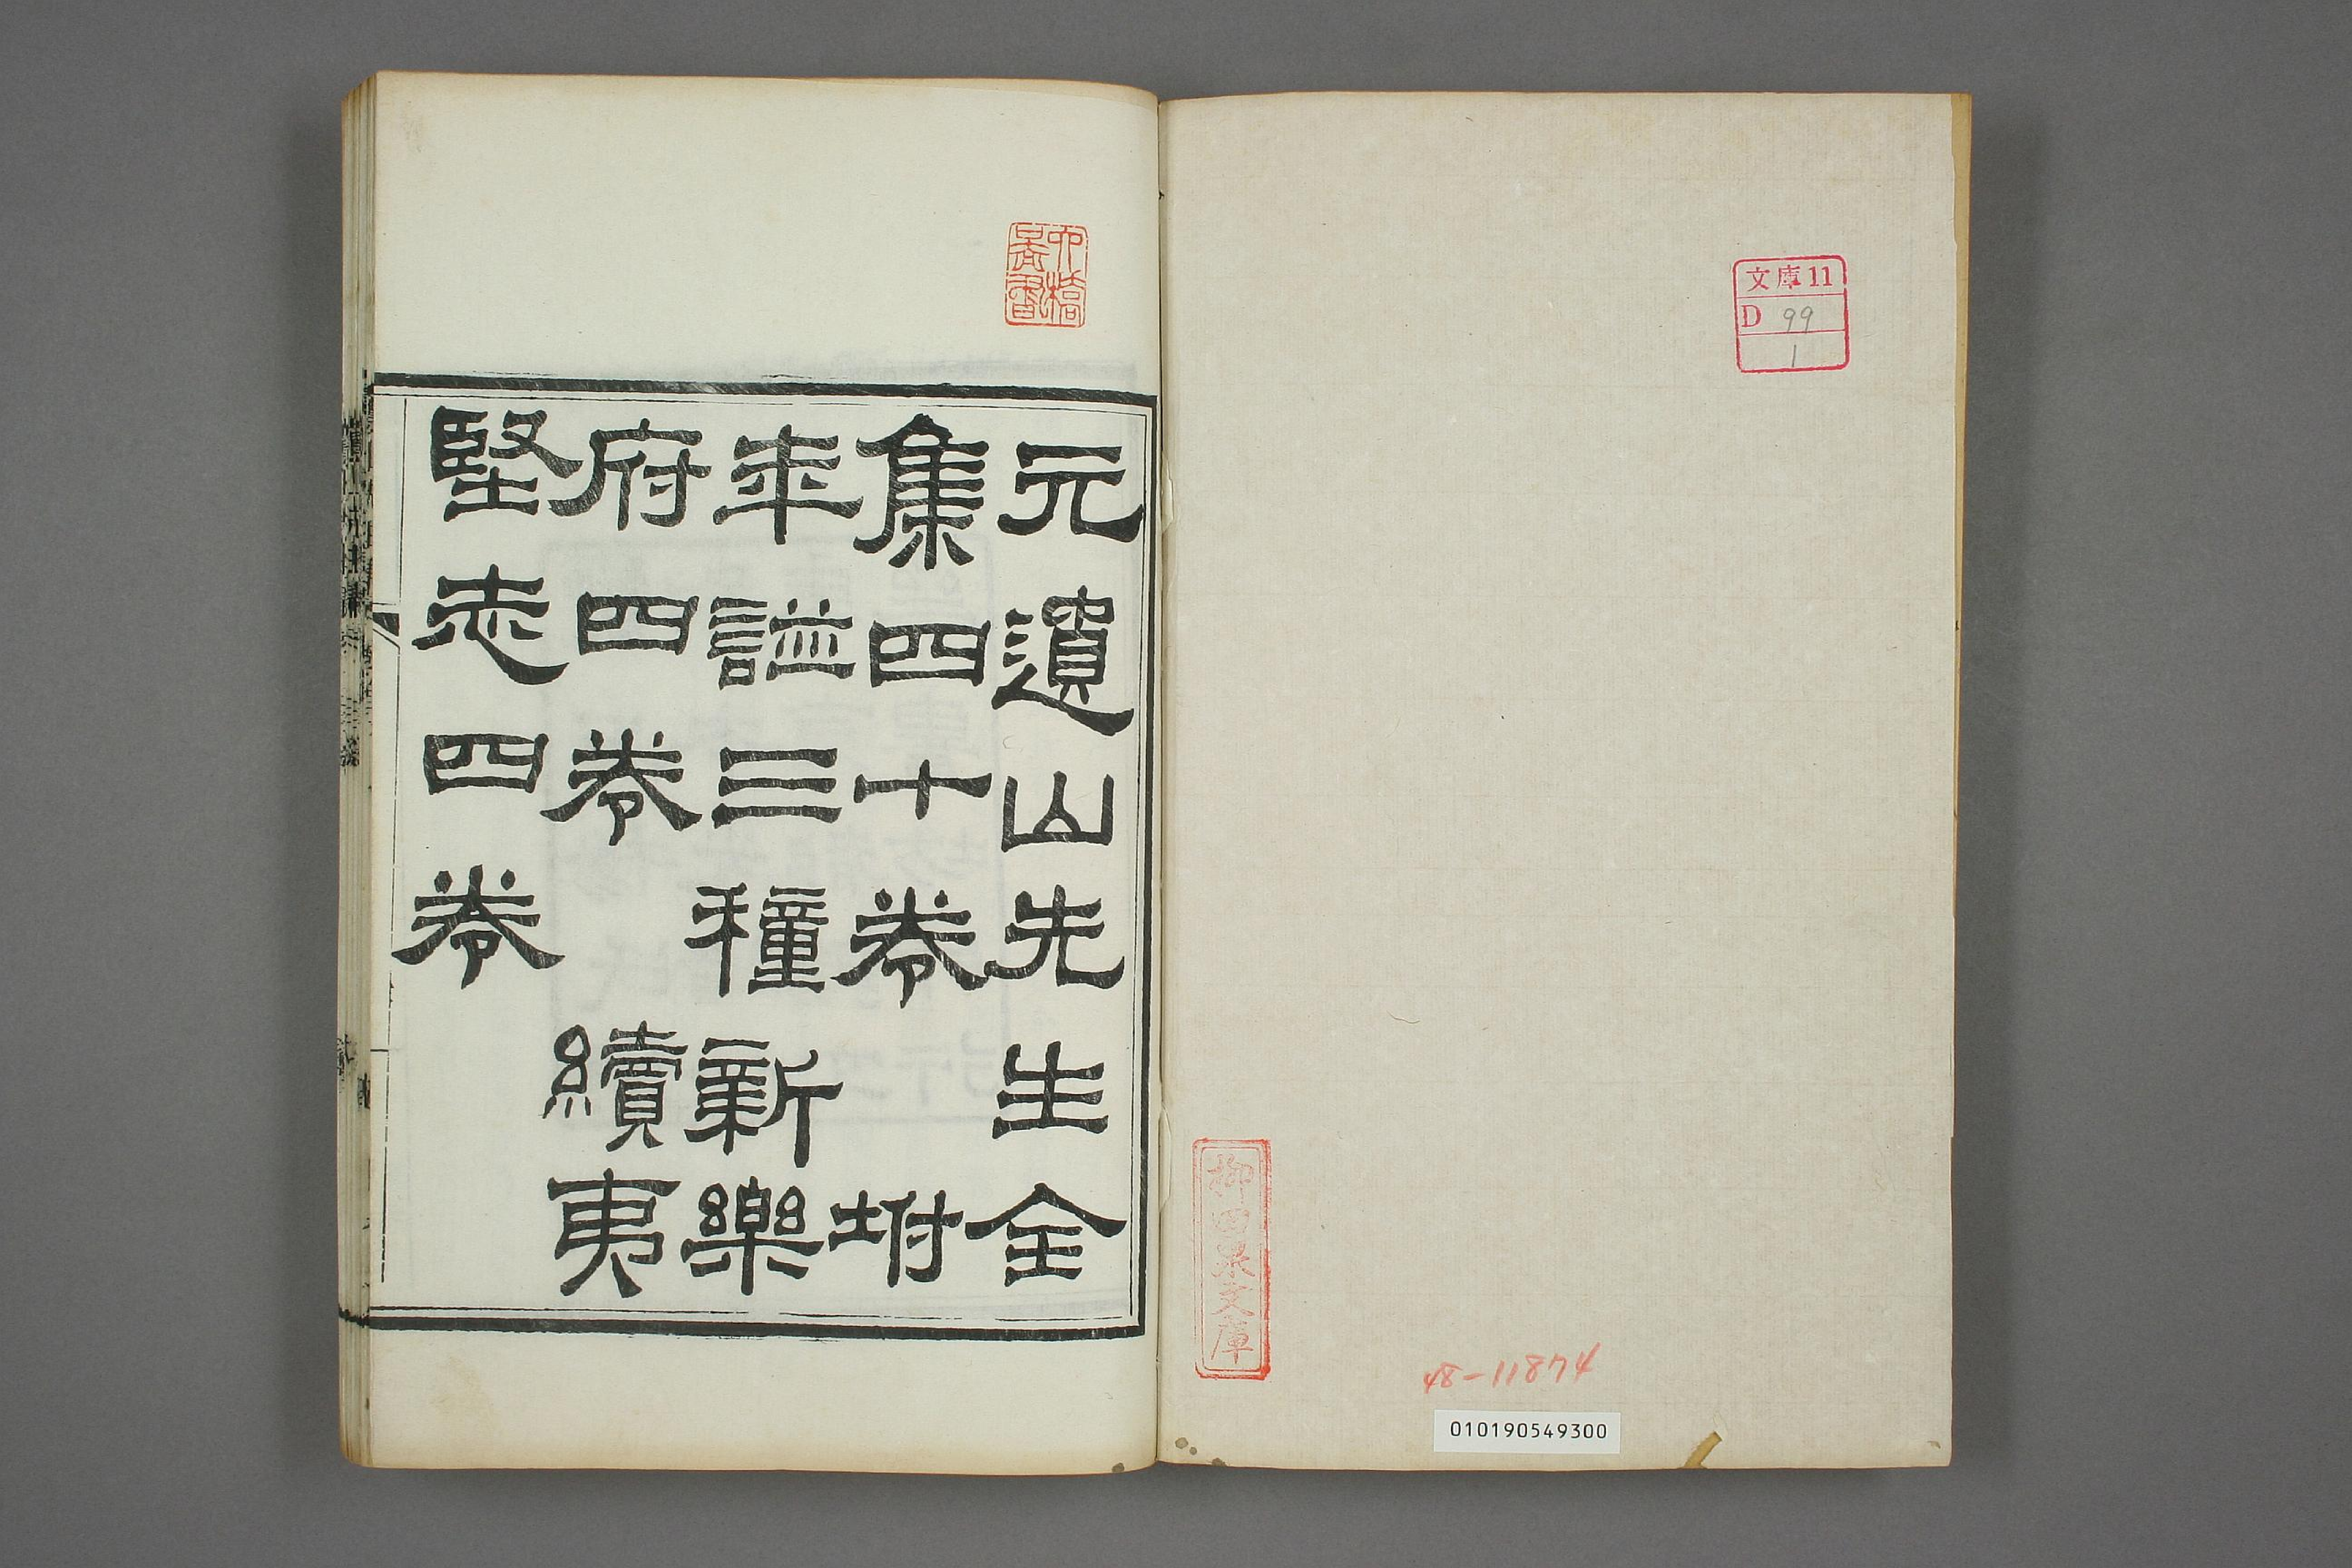 文庫11
D 99
1
柳田泉文庫
48-11874
010190549300
元遺山先生全
集四十卷 坿
年謚三種新樂
府四卷 續夷
堅志四卷